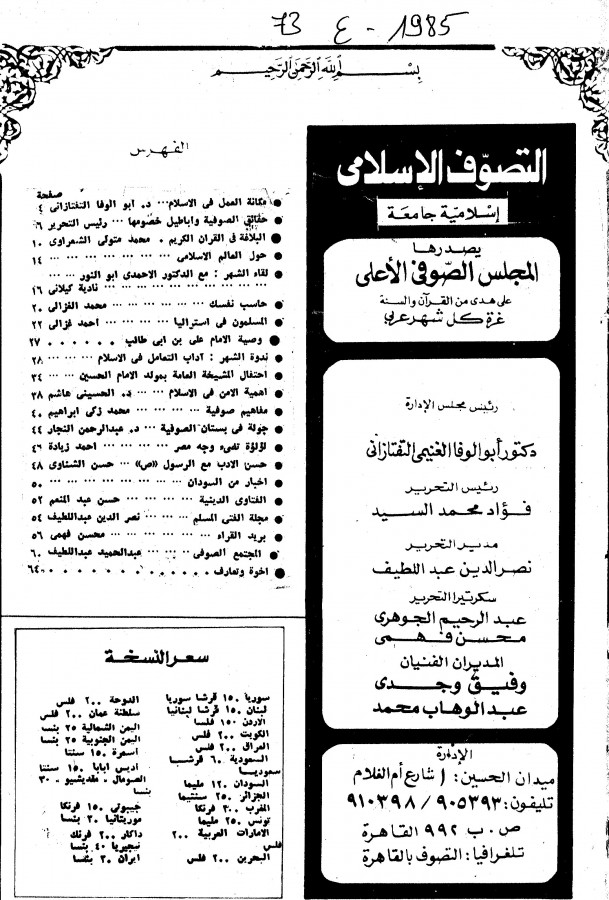 73 ع - 1985
بسم الله الرحمن الرحيم
التصوف الإسلامى
إسلامية جامعة
يصدرها
المجلس الصوفى الأعلى
على هدى من القرآن والسنة
غرة كل شهر عربى
رئيس مجلس الإدارة
دكتور أبو الوفا الغنيمى التفتازانى
رئيس التحرير
فؤاد محمد السيد
مدير التحرير
نصر الدين عبد اللطيف
سكرتيرا التحرير
عبد الرحيم الجوهرى
محسن فهمى
المديران الفنيان
وفيق وجدى
عبد الوهاب محمد
الإدارة
ميدان الحسين: ١ شارع أم الغلام
تليفون: ٩٠٥٣٩٣ / ٩١٠٣٩٨
ص . ب ٩٩٢ القاهرة
تلغرافيا: التصوف بالقاهرة
الفهرس
صفحة
● مكانة العمل فى الاسلام ... د. ابو الوفا التفتازانى ٤
● حقائق الصوفية واباطيل خصومها ... رئيس التحرير ٦
● البلاغة فى القران الكريم . محمد متولى الشعراوى ١٠
● حول العالم الاسلامى ... ... ... ... ... ١٤
● لقاء الشهر : مع الدكتور الاحمدى ابو النور ... ...
... ... ... ... ... ... نادية كيلانى ١٦
● حاسب نفسك ... ... ... ... محمد الغزالى ٢٠
● المسلمون فى استراليا ... ... ... احمد غزالى ٢٢
● وصية الامام على بن ابى طالب . . . . . . ٢٧
● ندوة الشهر : آداب التعامل فى الاسلام ... ... ... ٢٨
● احتفال المشيخة العامة بمولد الامام الحسين ... ... ٣٤
● اهمية الامن فى الاسلام ... د. الحسينى هاشم ٣٨
● مفاهيم صوفية ... ... ... محمد زكى ابراهيم ٤٠
● جولة فى بستان الصوفية ... د. عبدالرحمن النجار ٤٤
● لؤلؤة تضىء وجه مصر ... ... ... احمد زيادة ٤٦
● حسن الادب مع الرسول «ص» ... حسن الشناوى ٤٨
● اخبار من السودان ... ... ... ... ... ٥٠
● الفتاوى الدينية ... ... ... حسن عبد المنعم ٥٢
● مجلة الفتى المسلم ... ... نصر الدين عبداللطيف ٥٤
● بريد القراء ... ... ... ... محسن فهمى ٥٦
● المجتمع الصوفى ... ... عبدالحميد عبداللطيف ٦٠
● اخوة وتعارف . . . . . . . . . . . . ٦٤
سعر النسخة
سوريا ١٥٠ قرشا سوريا
لبنان ١٥٠ قرشا لبنانيا
الاردن ١٥٠ فلسا
الكويت ٢٠٠ فلس
العراق ٢٠٠ فلس
السعودية ٦٠ قرشا
سعوديا
السودان ١٢٠ مليما
الجزائر ٢٥٠ سنتيما
المغرب ٣٠٠ فرنكا
تونس ٢٥٠ مليما
الامارات العربية ٢٠٠
فلس
البحرين ٢٠٠ فلس
الدوحة ٢٠٠ فلس
سلطنة عمان ٢٠٠ فلس
اليمن الشمالية ٢٥ بنسا
اليمن الجنوبية ٢٥ بنسا
اسمرة ١٥٠ سنتا
اديس ابابا ١٥٠ سنتا
الصومال - مقديشيو - ٣٠
بنسا
جيبوتى ١٥٠ فرنكا
موريتانيا ٣٠ بنسا
داكار ٢٠٠ فرنك
نيجيريا ٤٠ بنسا
ايران ٣٠ بنسا